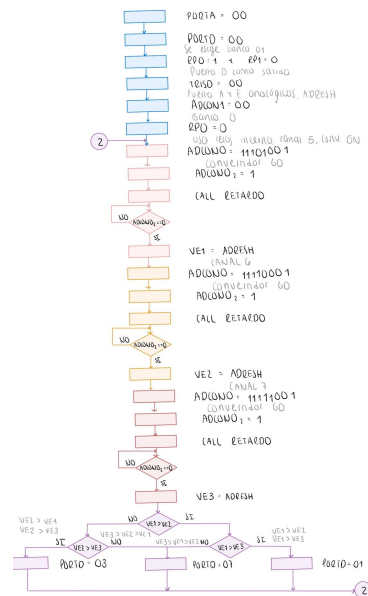 PORTA = 00
PORTD = 00
Se elige banco 01
RP0 = 1 y RP1 = 0
Puerto D como salida
TRISD = 00
Puerto A y E analógicos, ADRESH
ADCON1 = 00
Banco 0
RP0 = 0
2
USO reloj interno, canal 5, conv. ON
ADCON0 = 11101001
Convertidor GO
ADCON0₂ = 1
CALL RETARDO
NO
ADCON0₂=0
SI
VE1 = ADRESH
CANAL 6
ADCON0 = 11110001
Convertidor GO
ADCON0₂ = 1
CALL RETARDO
NO
ADCON0₂=0
SI
VE2 = ADRESH
CANAL 7
ADCON0 = 11111001
Convertidor GO
ADCON0₂ = 1
CALL RETARDO
NO
ADCON0₂=0
SI
VE3 = ADRESH
NO
VE1>VE2
SI
VE2 > VE1
VE2 > VE3
VE3 > VE2 > VE1
VE3 > VE1 > VE2
VE1 > VE2
VE1 > VE3
SI
VE2>VE3
NO
NO
VE1>VE3
SI
PORTD = 03
PORTD = 07
PORTD = 01
2